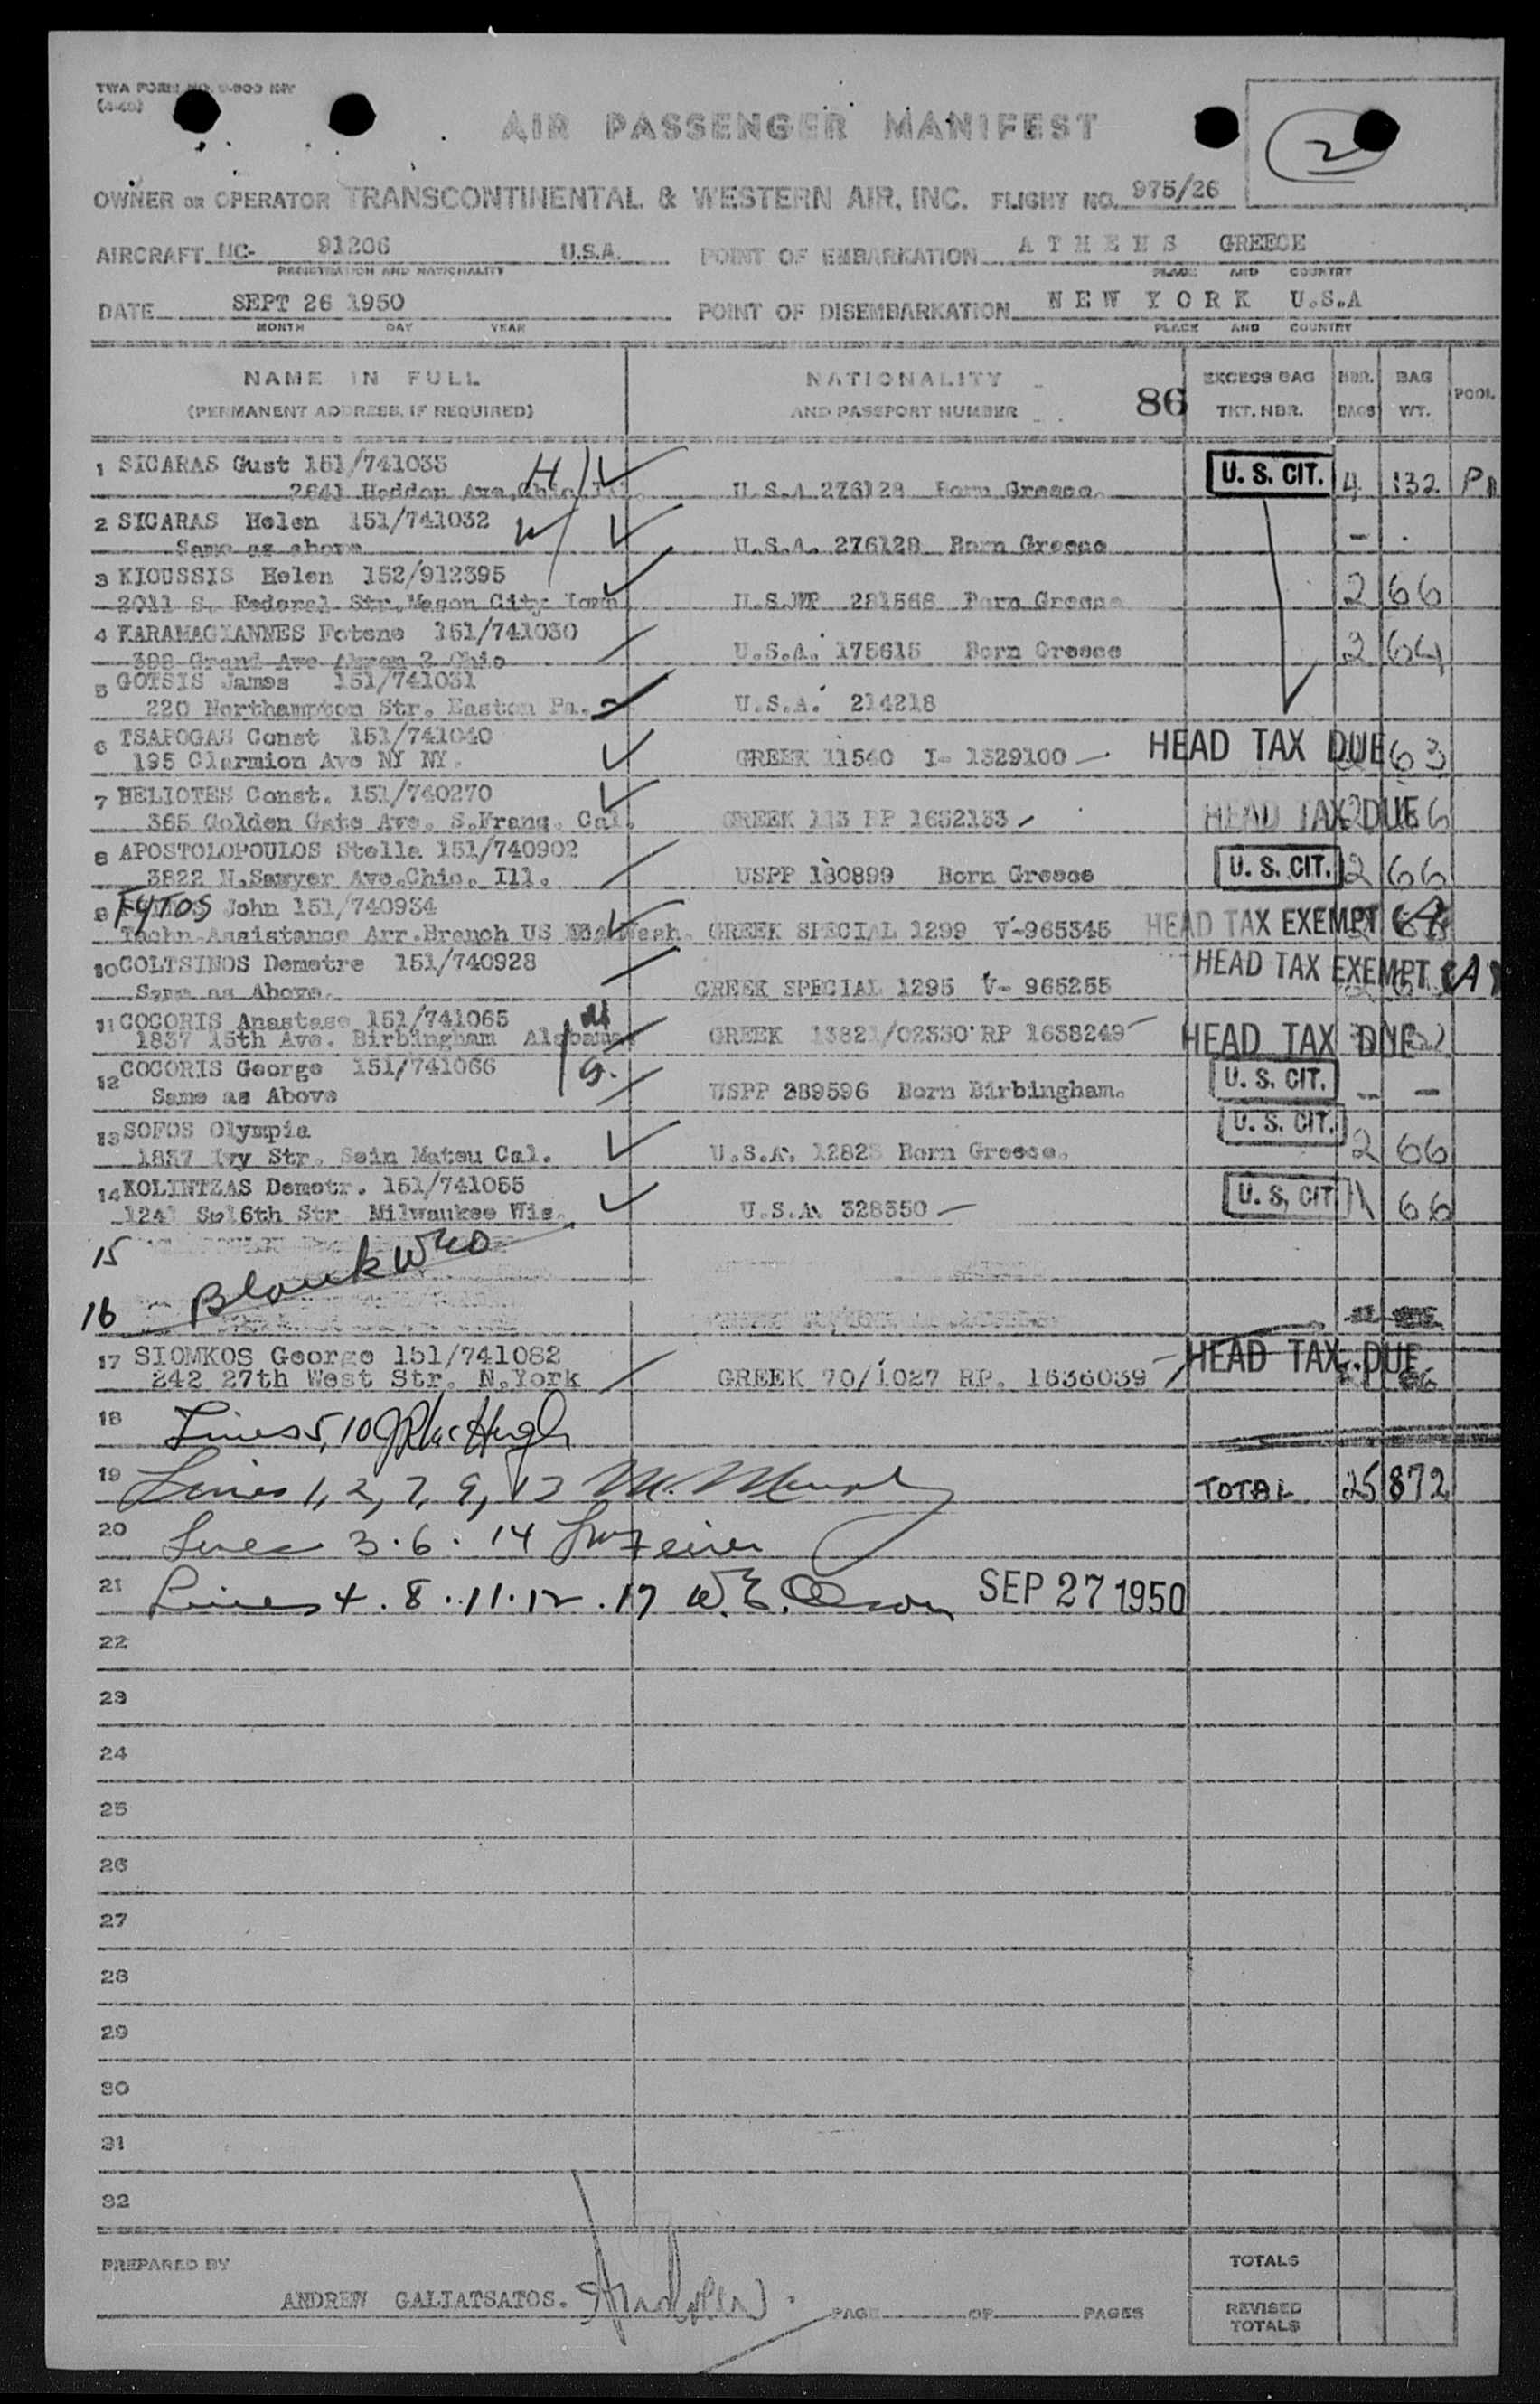 TWA FORM NO.
AIR PASSENGER MANIFEST
2
OWNER OR OPERATOR TRANSCONTINENTAL & WESTERN AIR, INC. FLIGHT NO. 975/26
AIRCRAFT NC- 91206 U.S.A. POINT OF EMBARKATION A T H E N S GREECE
REGISTRATION AND NATIONALITY PLACE AND COUNTRY
DATE SEPT 26 1950 POINT OF DISEMBARKATION N E W Y O R K U.S.A
MONTH DAY YEAR PLACE AND COUNTRY
NAME IN FULL NATIONALITY EXCESS BAG NBR. BAG POOL
(PERMANENT ADDRESS, IF REQUIRED) AND PASSPORT NUMBER 86 TKT. NBR. BAGS WT.
1 SICARAS Gust 151/741033 H
2641 Haddon Ave, Chic Ill. U.S.A 276128 Born Greece. U. S. CIT. 4 132
2 SICARAS Helen 151/741032 W
Same as above U.S.A. 276128 Born Greece -
3 KIOUSSIS Helen 152/912395
2011 S. Federal Str. Mason City Iowa 281568 Born Greece 2 66
4 KARAMAGIANNES Fotene 151/741030
398 Grand Ave Akron 2 Ohio U.S.A. 175615 Born Greece 2 64
5 GOTSIS James 151/741031
220 Northampton Str. Easton Pa. U.S.A. 214218
6 TSAPOGAS Const 151/741040
195 Clarmion Ave NY NY. GREEK 11540 I- 1329100 HEAD TAX DUE 63
7 HELIOTES Const. 151/740270
365 Golden Gate Ave. S.Franc. Cal. GREEK 113 RP 1652133 HEAD TAX DUE
8 APOSTOLOPOULOS Stella 151/740902
3822 N.Sawyer Ave.Chic. Ill. USPP 180899 Born Greece U. S. CIT. 2 66
9 FYTOS John 151/740934
Techn.Assistance Arr.Branch US Wash. GREEK SPECIAL 1299 V-965345 HEAD TAX EXEMPT
10 COLTSINOS Demetre 151/740928
Same as Above. GREEK SPECIAL 1295 V- 965255 HEAD TAX EXEMPT
11 COCORIS Anastase 151/741065 M
1837 15th Ave. Birbingham Alabama. GREEK 13821/02330 RP 1638249 HEAD TAX DUE
12 COCORIS George 151/741066 S.
Same as Above USPP 289596 Born Birbingham. U. S. CIT. - -
13 SOFOS Olympia
1837 Ivy Str. Sein Mateu Cal. U.S.A. 12823 Born Greece. U. S. CIT. 2 66
14 KOLINTZAS Demetr. 151/741055
1241 So16th Str. Milwaukee Wis. U.S.A. 328350 U. S. CIT 1 66
15
Blank WEO
16
17 SIOMKOS George 151/741082
242 27th West Str. N.York GREEK 70/1027 RP. 1636039 HEAD TAX DUE 66
18 Lines 5, 10
19 Lines 1, 2, 7, 9, 13 TOTAL 25 872
20 Lines 3. 6. 14
21 Lines 4. 8. 11. 12. 17 W.E. Olson SEP 27 1950
22
23
24
25
26
27
28
29
30
31
32
PREPARED BY TOTALS
ANDREW GALIATSATOS.
PAGE OF PAGES REVISED
TOTALS